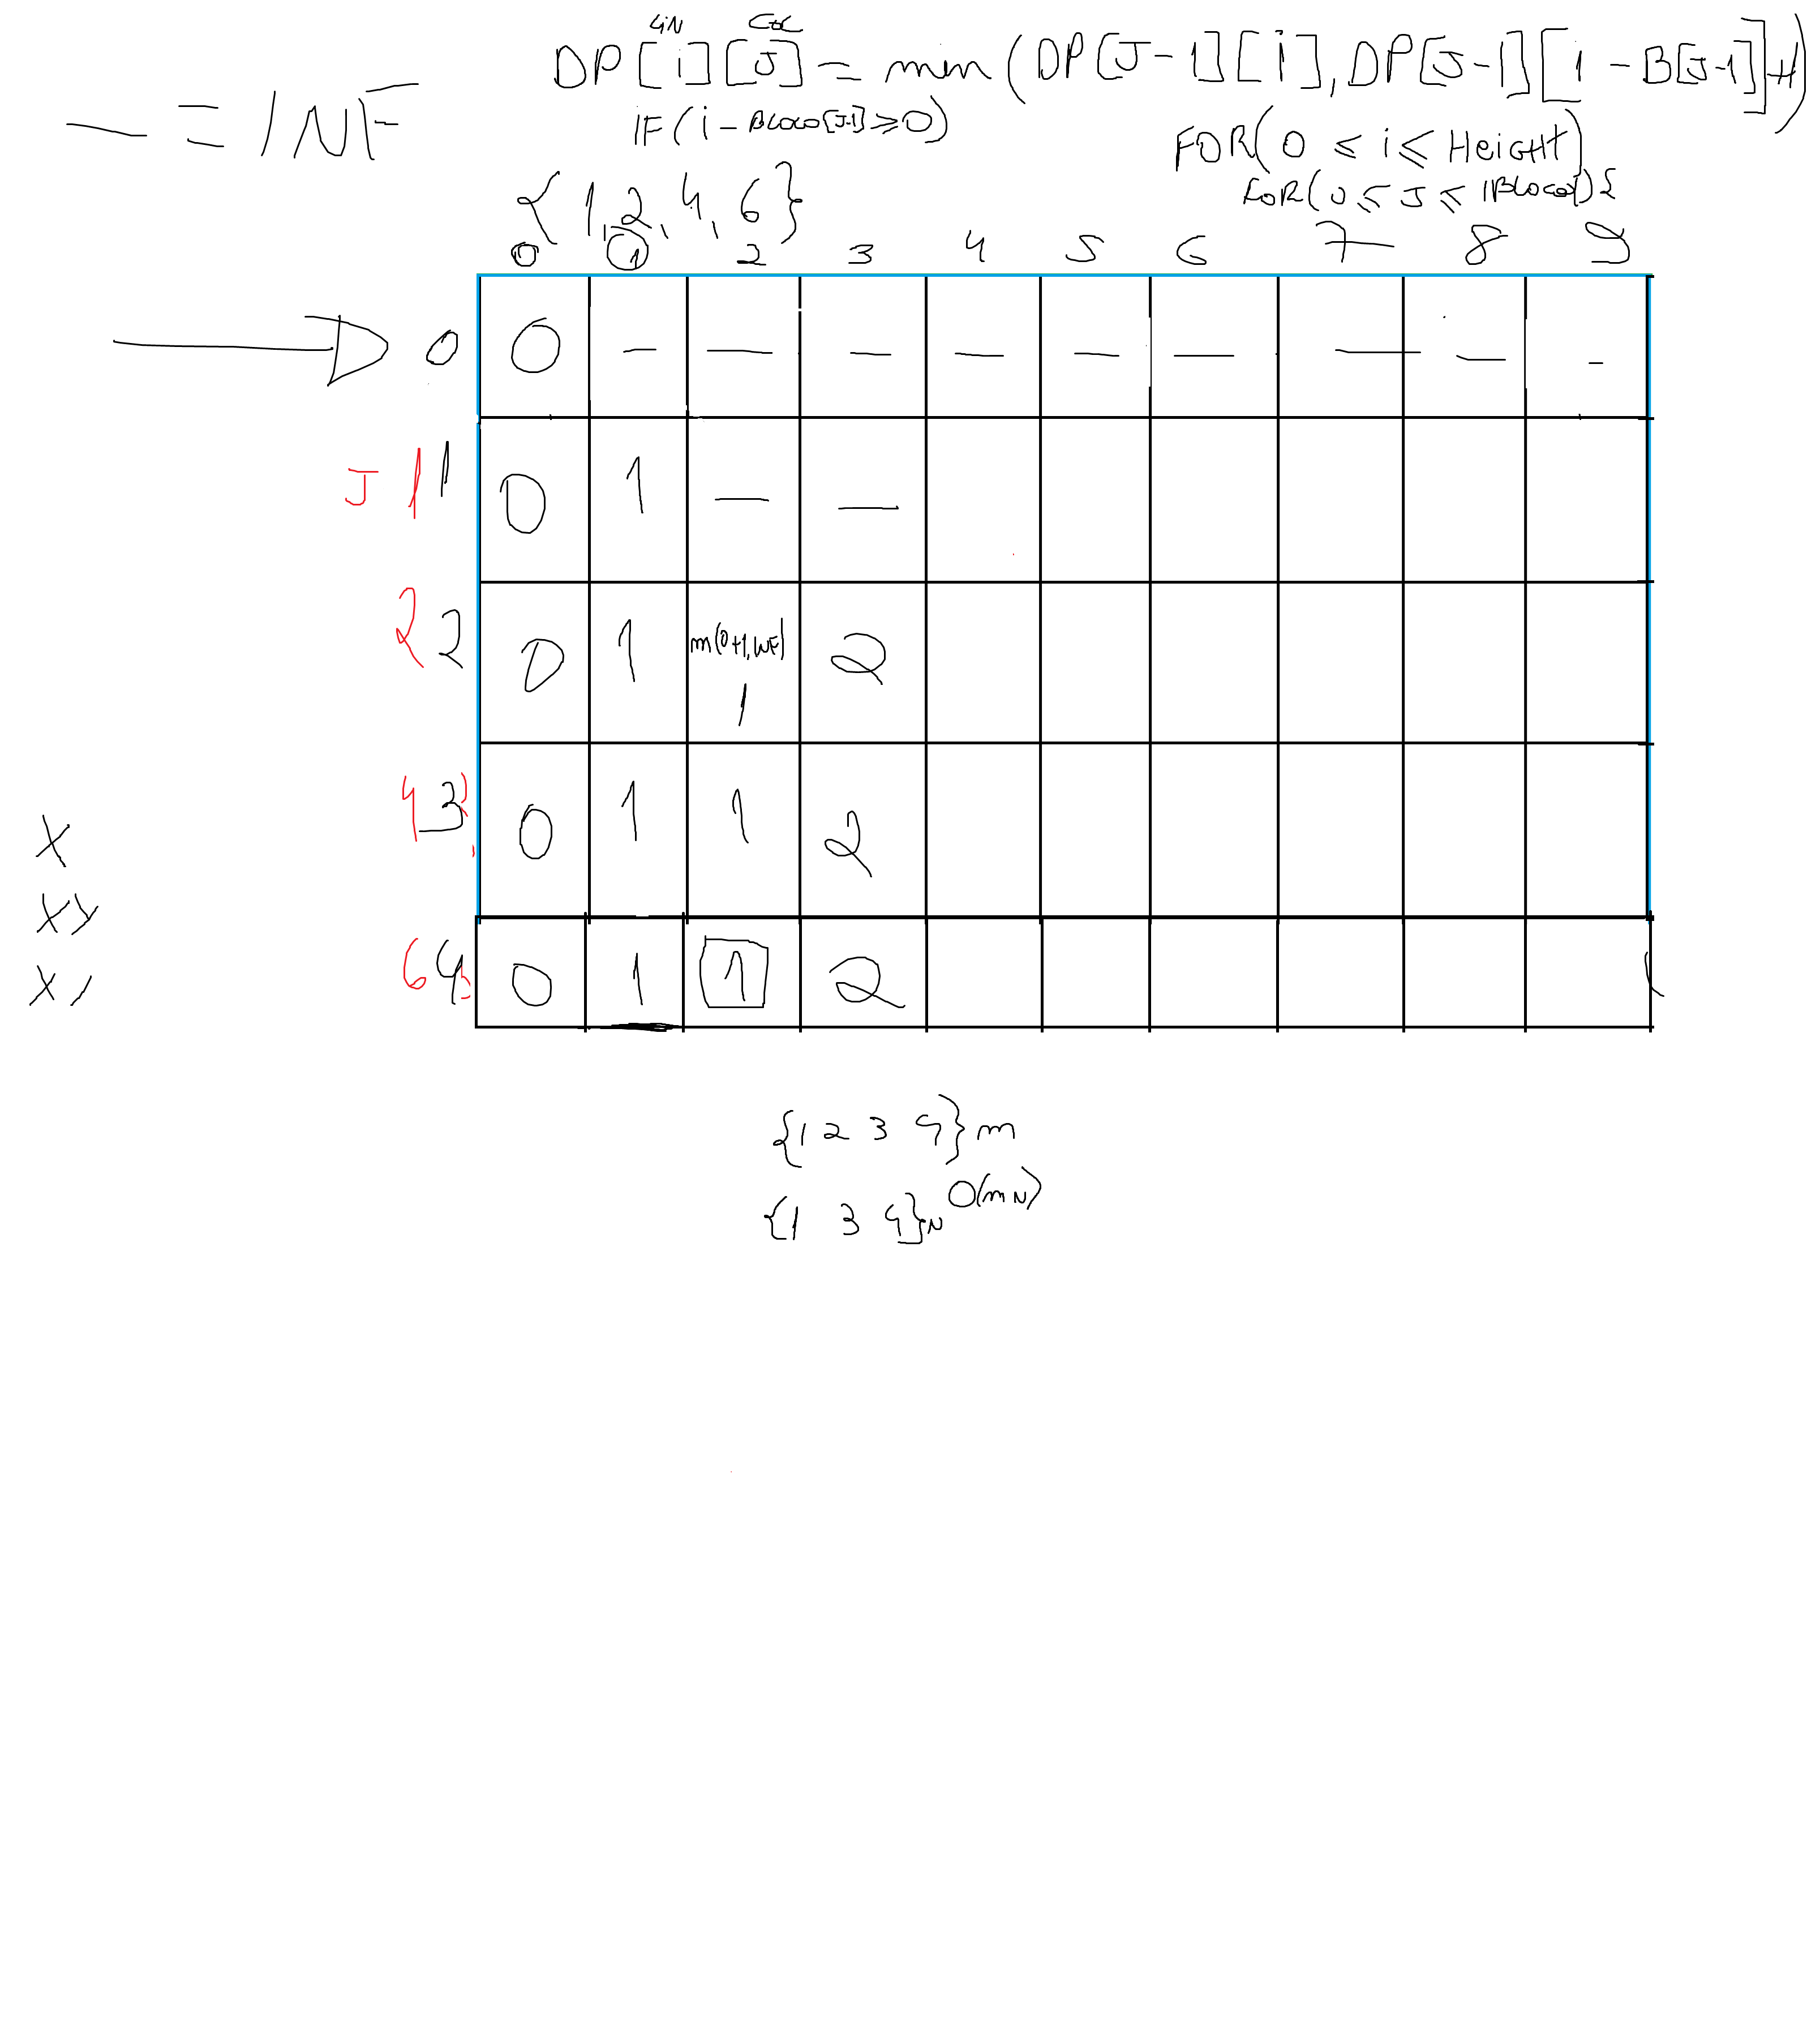 LIN COL
DP[i][J] = min(DP[J-1][i], DP[J-1][i-B[J-1]]+1)
— = INF
IF(i-BLOCO[J-1]≥0)
FOR(0 ≤ i ≤ HeiGHt)
FOR(0 ≤ J ≤ |BLOCOS|){
{1,2,4,6}
0 1 2 3 4 5 6 7 8 9
0 0 — — — — — — — — —
J 1 1 0 1 — —
2 2 0 1 m(0+1,INF) 2
1
4 3 0 1 1 2
X
6 4 0 1 1 2
{1 2 3 4}m
{1 3 4}N O(m N)